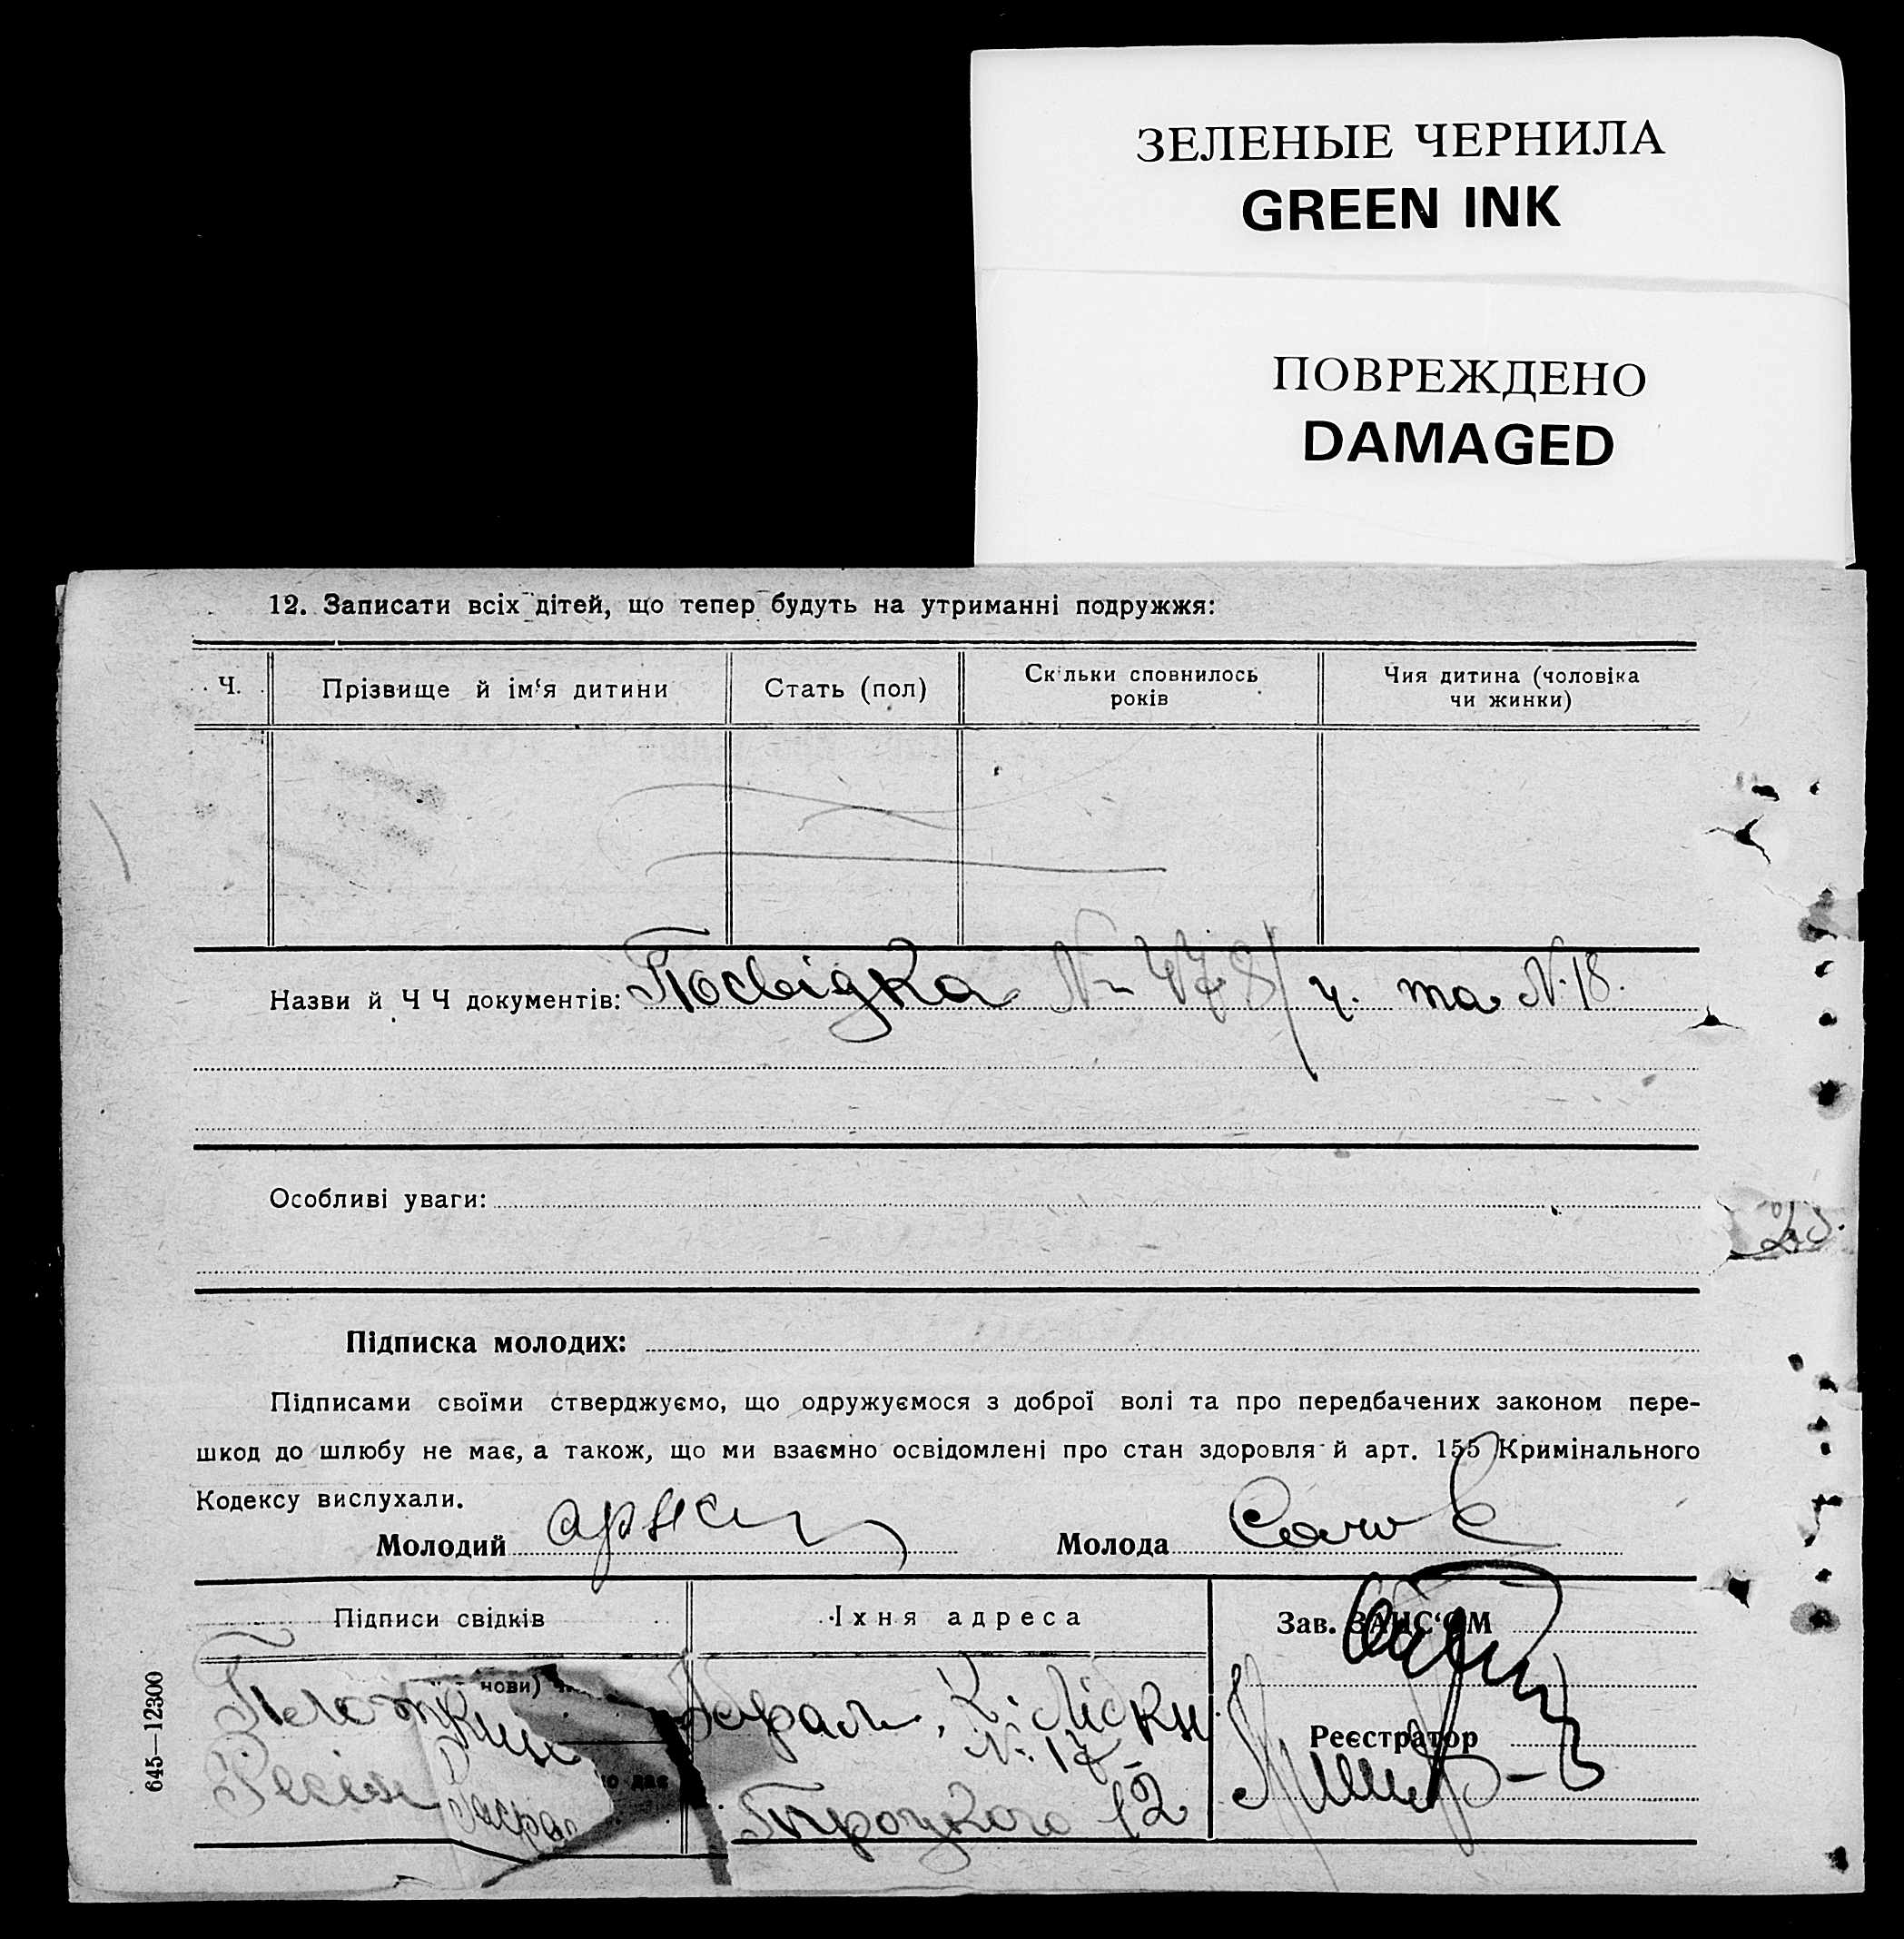 ЗЕЛЕНЫЕ ЧЕРНИЛА
GREEN INK
ПОВРЕЖДЕНО
DAMAGED
12. Записати всіх дітей, що тепер будуть на утриманні подружжя:
Ч.
Прізвище й ім‘я дитини
Стать (пол)
Скільки сповнилось
років
Чия дитина (чоловіка
чи жинки)
Назви й Ч Ч документів: Посвідка № 478/ч. та N. 18.
Особливі уваги:
Підписка молодих:
Підписами своїми стверджуємо, що одружуємося з доброї волі та про передбачених законом пере-
шкод до шлюбу не має, а також, що ми взаємно освідомлені про стан здоровля й арт. 155 Кримінального
Кодексу вислухали.
Молодий
Молода
Підписи свідків
Їхня адреса
Зав. ЗАНС‘ОМ
нови)
К. Лібкн
№ 17
Реєстратор
о дає
Троцкого 12
645—12300